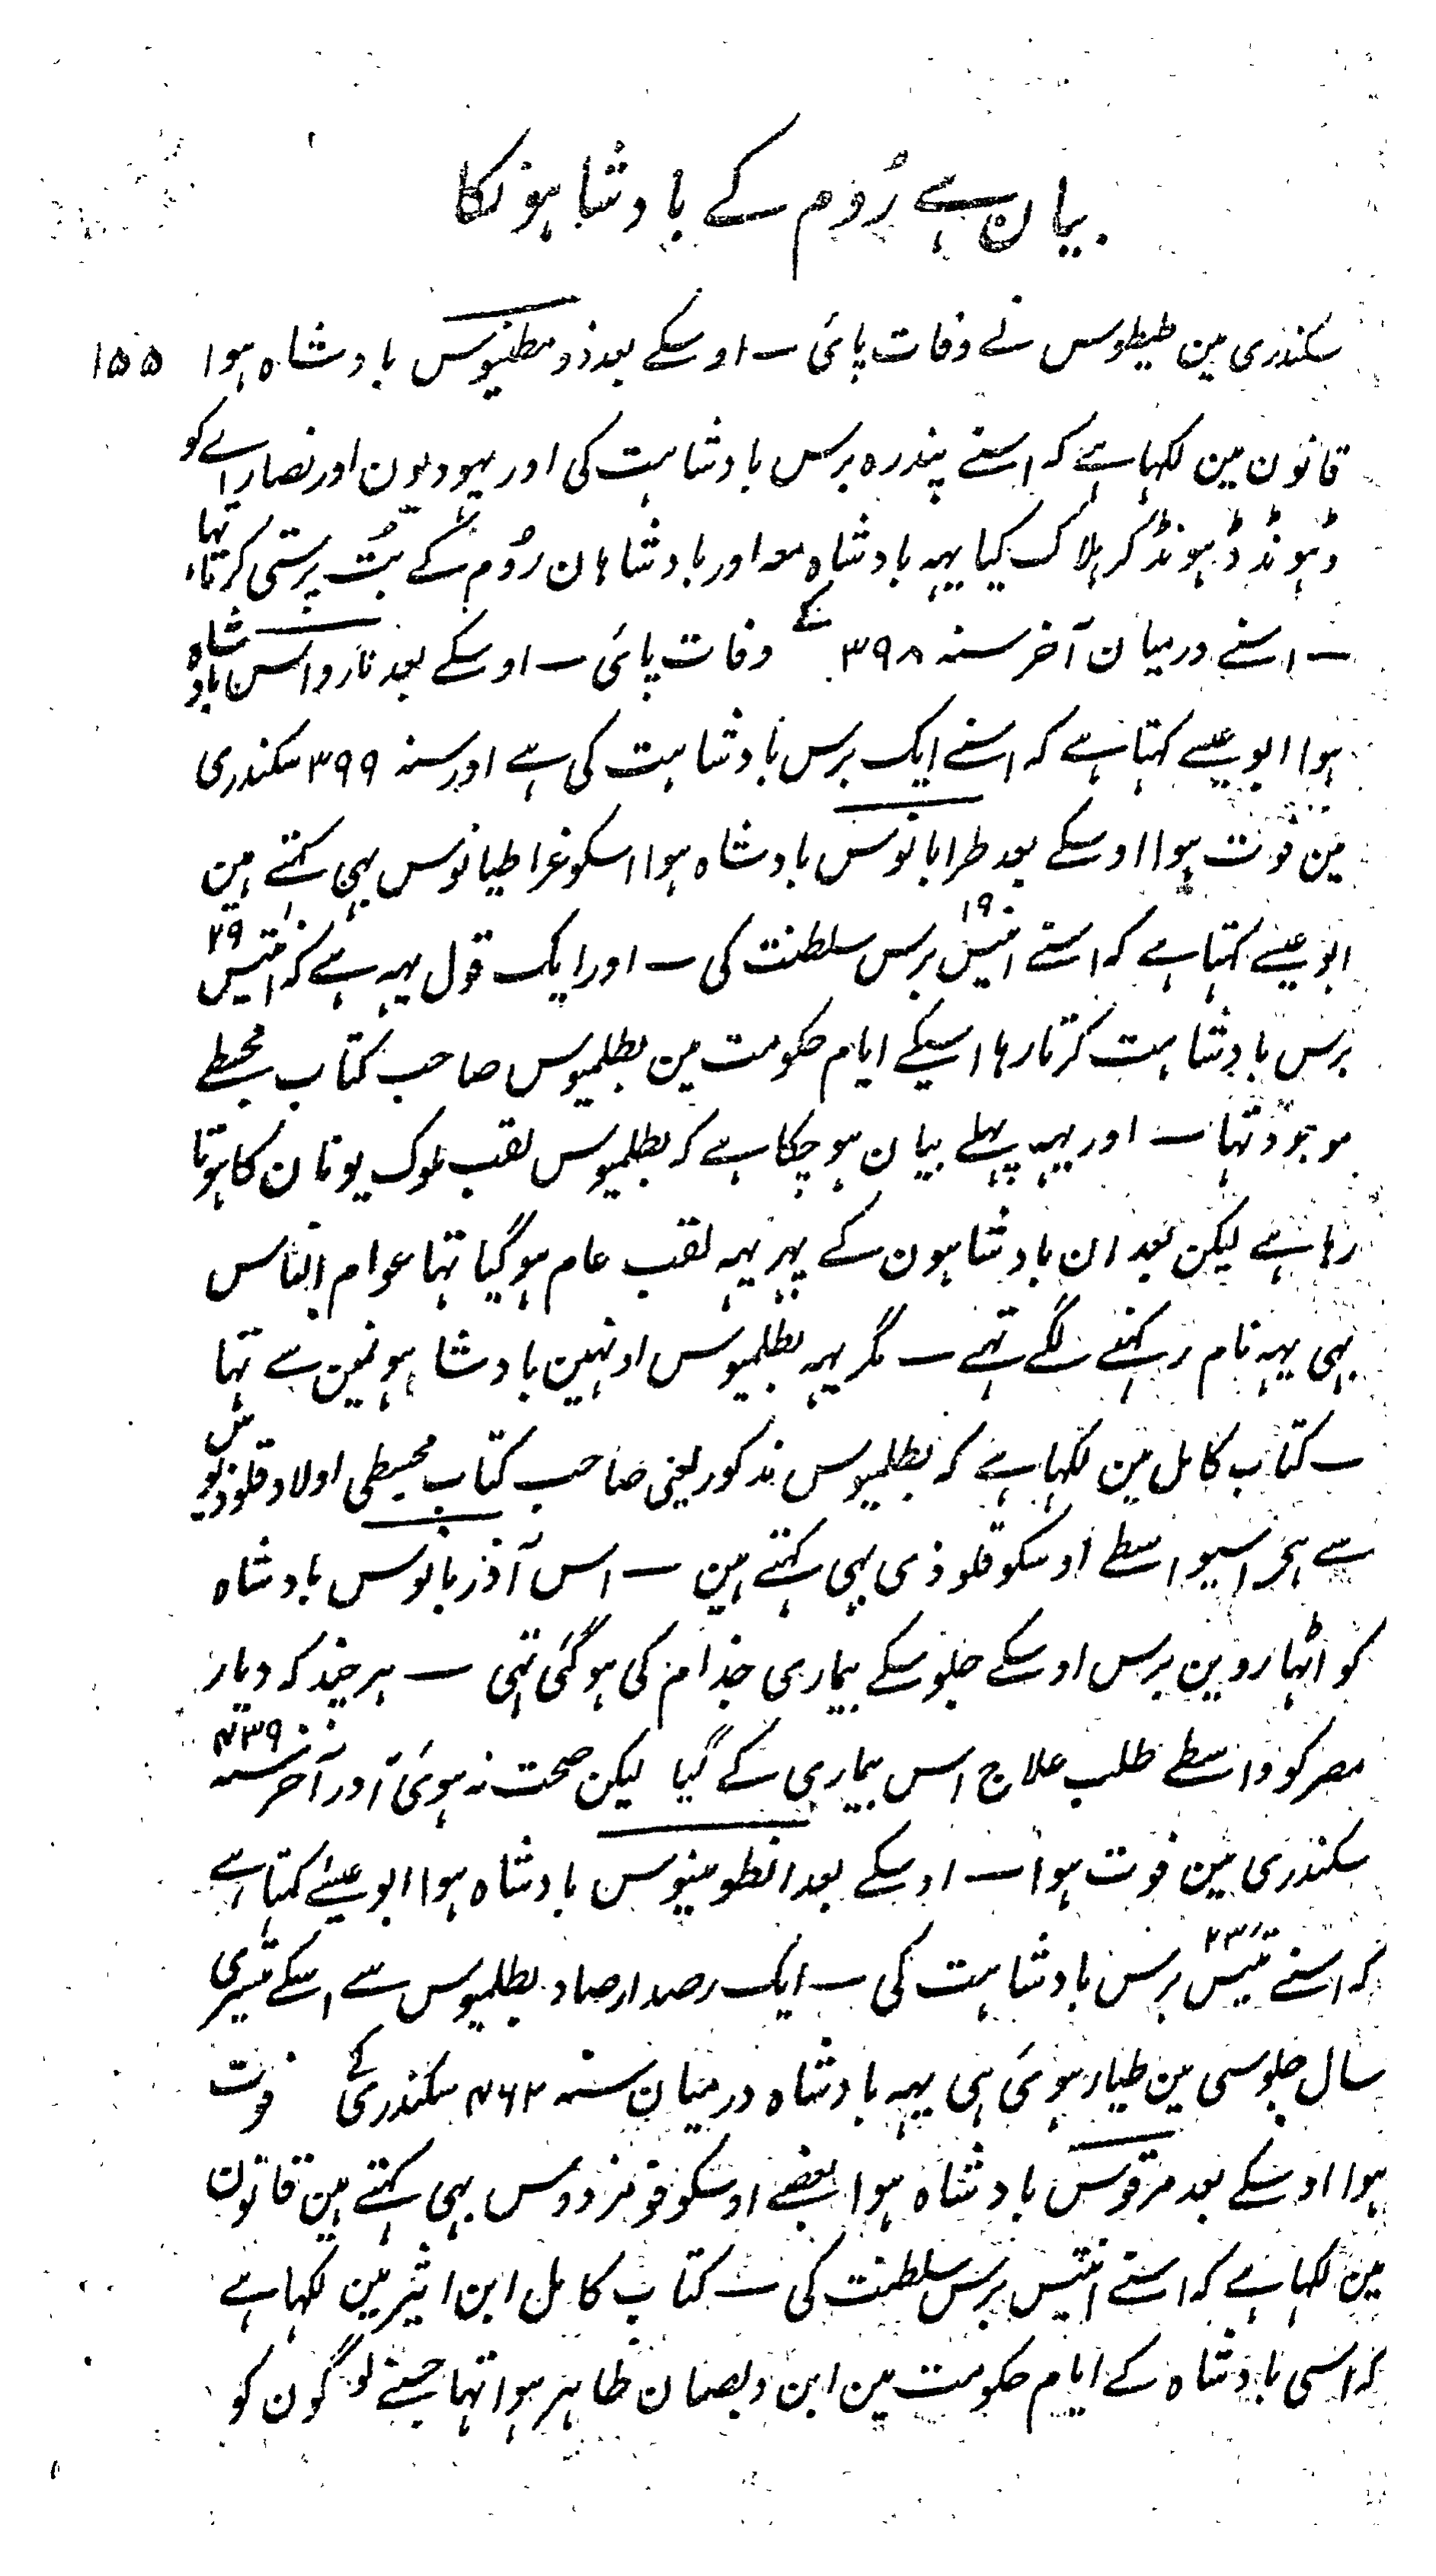 بیان ہے رُوم کے بادشاہونکا
سکندری مین طیطوس نے وفات پائی ــ اوسکے بعد ذومطنیوس بادشاہ ہوا ۱۵۵
قانون مین لکہا ہے کہ اسنے پندرہ برس بادشاہت کی اور یہودیون اور نصارے کو
ڈہونڈ ڈہونڈ کر ہلاک کیا یہہ بادشاہ معہ اور بادشاہان رُوم کے بُت پرستی کرتا تہا
ــ اسنے درمیان آخر سنہ ۳۹۸ کے وفات پائی ــ اوسکے بعد نارواس بادشاہ
ہوا ابو عیسے کہتا ہے کہ اسنے ایک برس بادشاہت کی ہے اور سنہ ۳۹۹ سکندری
مین فوت ہوا اوسکے بعد طرابانوس بادشاہ ہوا اسکو غراطیانوس بہی کہتے ہین
ابو عیسے کہتا ہے کہ اسنے انیس ۱۹ برس سلطنت کی ــ اور ایک قول یہہ ہے کہ انتیس ۲۹
برس بادشاہت کرتا رہا اسیکے ایام حکومت مین بطلمیوس صاحب کتاب مجسطے
موجود تہا ــ اور یہہ پہلے بیان ہو چکا ہے کہ بطلمیوس لقب ملوک یونان کا ہوتا
رہا ہے لیکن بعد ان بادشاہون کے پہر یہہ لقب عام ہو گیا تہا عوام الناس
بہی یہہ نام رکہنے لگے تہے ــ مگر یہہ بطلمیوس اونہین بادشاہونمین سے تہا
ــ کتاب کامل مین لکہا ہے کہ بطلمیوس مذکور یعنی صاحب کتاب مجسطی اولاد قلوذیوس
سے ہی اسیواسطے اوسکو قلوذی بہی کہتے ہین ــ اس آذربانوس بادشاہ
کو اٹہاروین برس اوسکے جلوسکے بیماری جذام کی ہو گئی تہی ــ ہر چند کہ دیار
مصر کو واسطے طلب علاج اس بیماری کے گیا لیکن صحت نہ ہوئی اور آخر سنہ ۴۳۹
سکندری مین فوت ہوا ــ اوسکے بعد انطومینوس بادشاہ ہوا ابو عیسے کہتا ہے
کہ اسنے تیئس ۲۳ برس بادشاہت کی ــ ایک رصد ارصاد بطلمیوس سے اسکے تیسری
سال جلوسی مین طیار ہوئی ہی یہہ بادشاہ درمیان سنہ ۴۶۲ سکندری کے فوت
ہوا اوسکے بعد مرقوس بادشاہ ہوا بعضے اوسکو قومزدوس بہی کہتے ہین قانون
مین لکہا ہے کہ اسنے انتیس برس سلطنت کی ــ کتاب کامل ابن اثیر مین لکہا ہے
کہ اسی بادشاہ کے ایام حکومت مین ابن دیصان ظاہر ہوا تہا جسنے لوگون کو